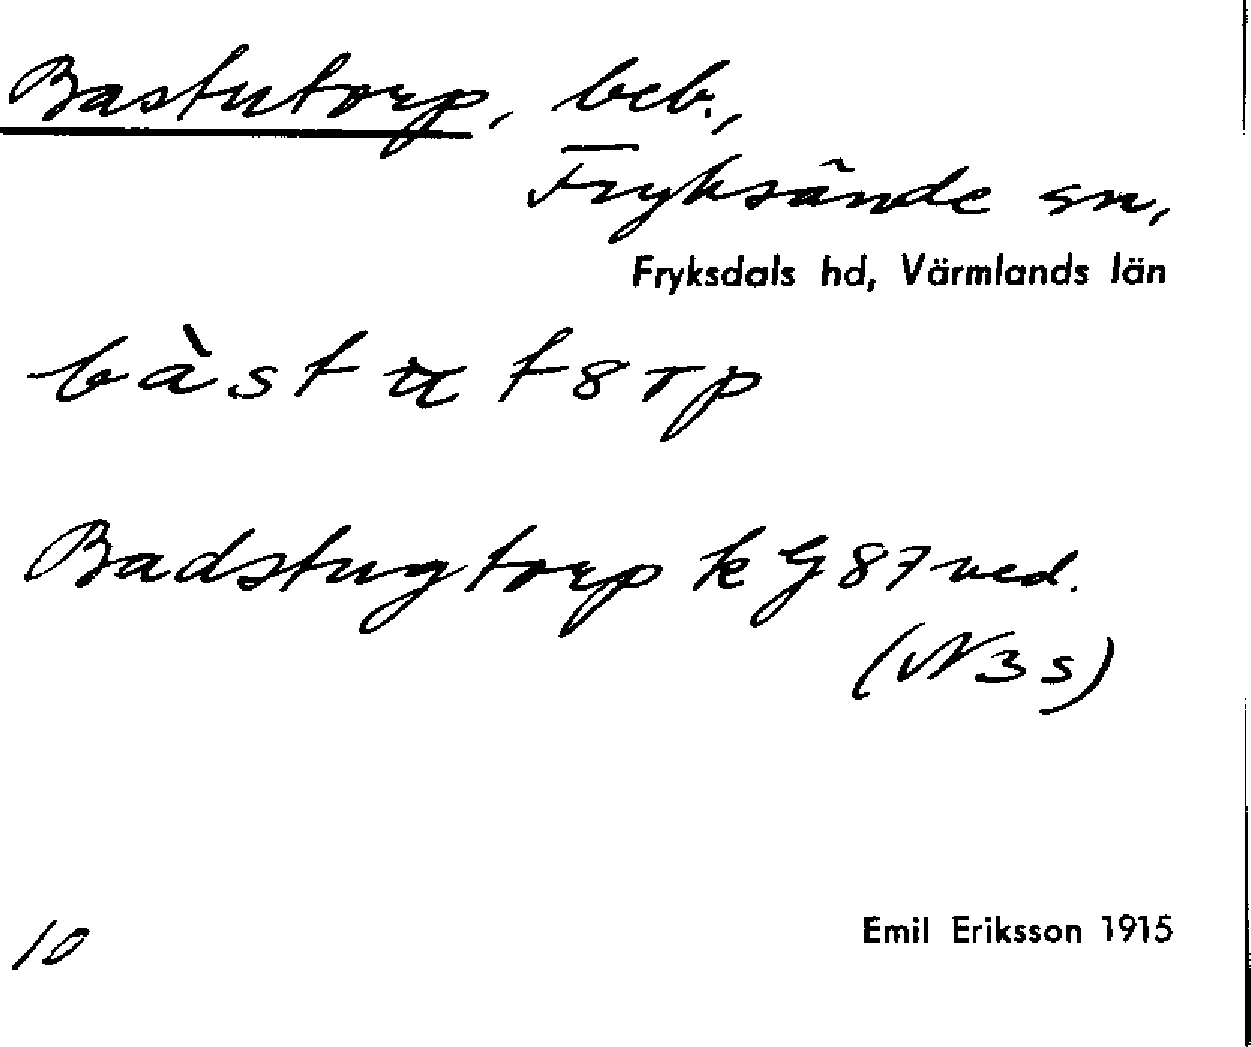 Bastutorp, beb.,
Fryksände sn,
Fryksdals hd, Värmlands län
bàst u t8rp
Badstugtorp k G 87 ved.
(N 3 s)
10
Emil Eriksson 1915